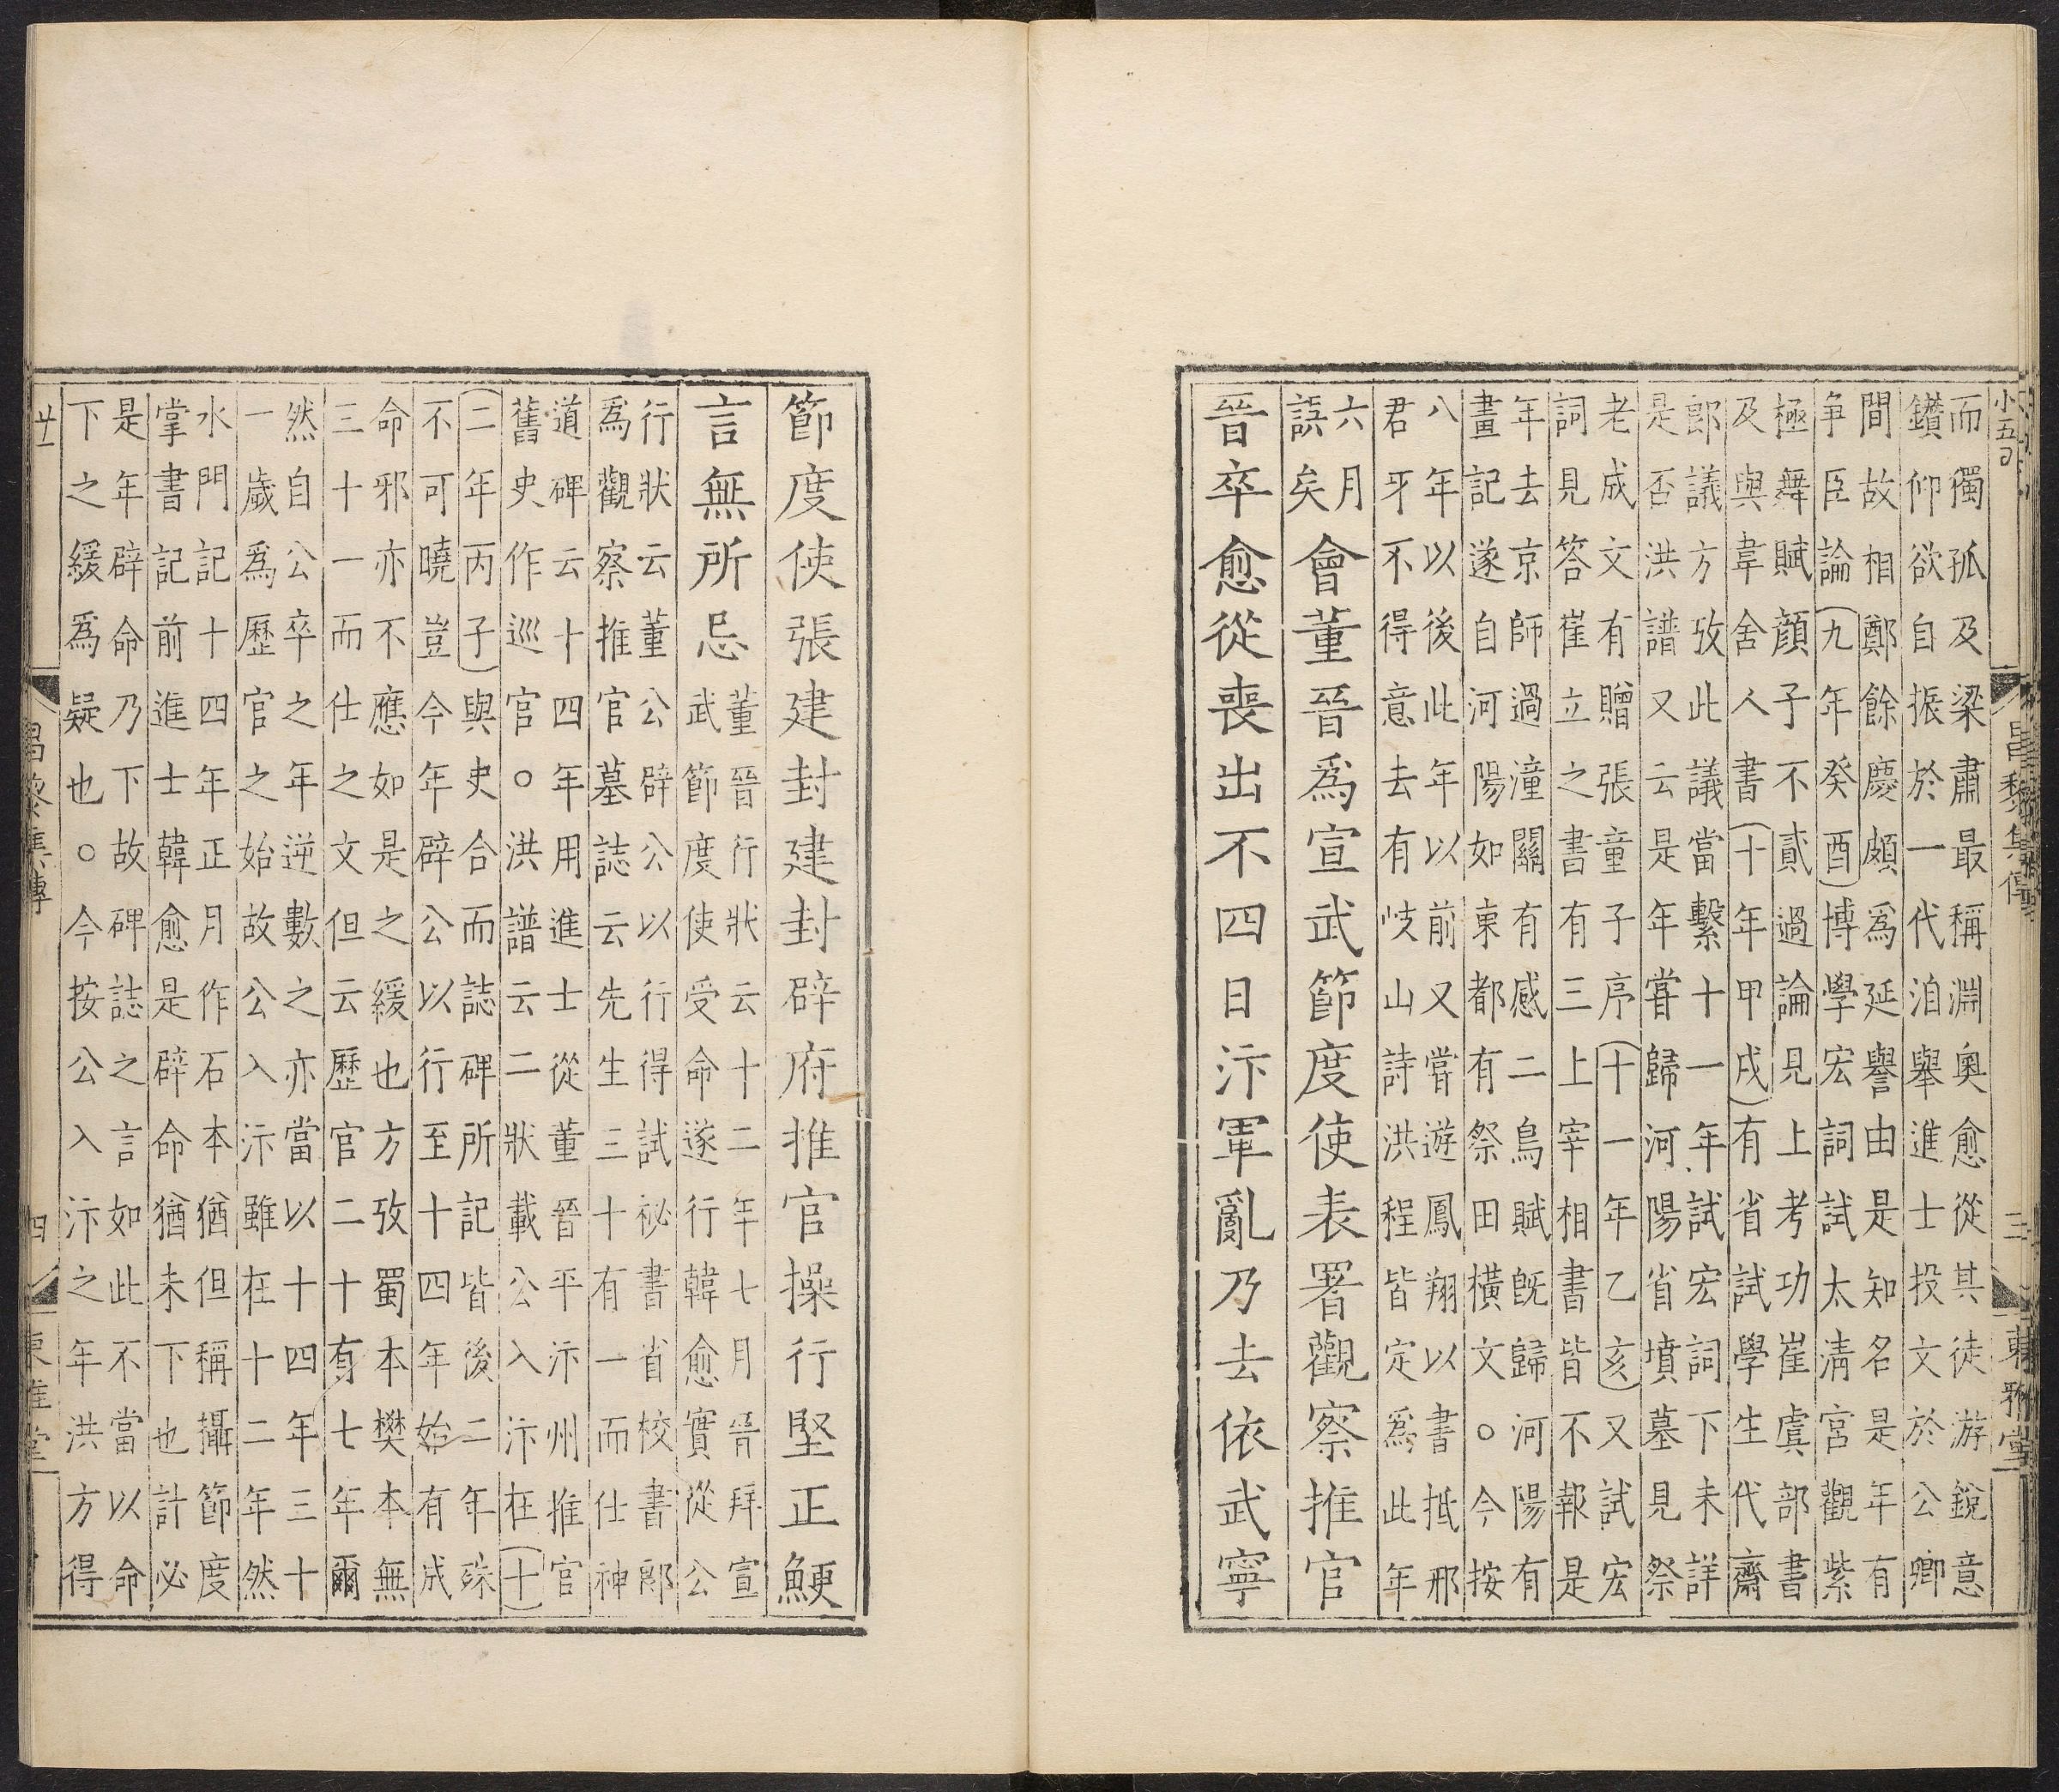 而獨孤及梁肅最稱淵奧愈從其徒游銳意
鑽仰欲自振於一代洎舉進士投文於公卿
間故相鄭餘慶頗為延譽由是知名是年有
爭臣論九年癸酉博學宏詞試太清宮觀紫
極舞賦顏子不貳過論見上考功崔虞部書
及與韋舍人書十年甲戌有省試學生代齋
郎議方攷此議當繫十一年試宏詞下未詳
是否洪譜又云是年嘗歸河陽省墳墓見祭
老成文有贈張童子序十一年乙亥又試宏
詞見答崔立之書有三上宰相書皆不報是
年去京師過潼關有感二鳥賦既歸河陽有
畫記遂自河陽如東都有祭田橫文○今按
八年以後此年以前又嘗遊鳳翔以書抵邢
君牙不得意去有岐山詩洪程皆定為此年
六月
誤矣
會董晉爲宣武節度使表署觀察推官
晉卒愈從喪出不四日汴軍亂乃去依武寧
小五
昌黎集傳
三
東雅堂
節度使張建封建封辟府推官操行堅正鯁
言無所忌
董晉行狀云十二年七月晉拜宣
武節度使受命遂行韓愈實從公
行狀云董公辟公以行得試祕書省校書郎
爲觀察推官墓誌云先生三十有一而仕神
道碑云十四年用進士從董晉平汴州推官
舊史作巡官○洪譜云二狀載公入汴在十
二年丙子與史合而誌碑所記皆後二年殊
不可曉豈今年辟公以行至十四年始有成
命邪亦不應如是之緩也方攷蜀本樊本無
三十一而仕之文但云歷官二十有七年爾
然自公卒之年逆數之亦當以十四年三十
一歲爲歷官之始故公入汴雖在十二年然
水門記十四年正月作石本猶但稱攝節度
掌書記前進士韓愈是辟命猶未下也計必
是年辟命乃下故碑誌之言如此不當以命
下之緩爲疑也○今按公入汴之年洪方得
廿一
昌黎集傳
四
東雅堂